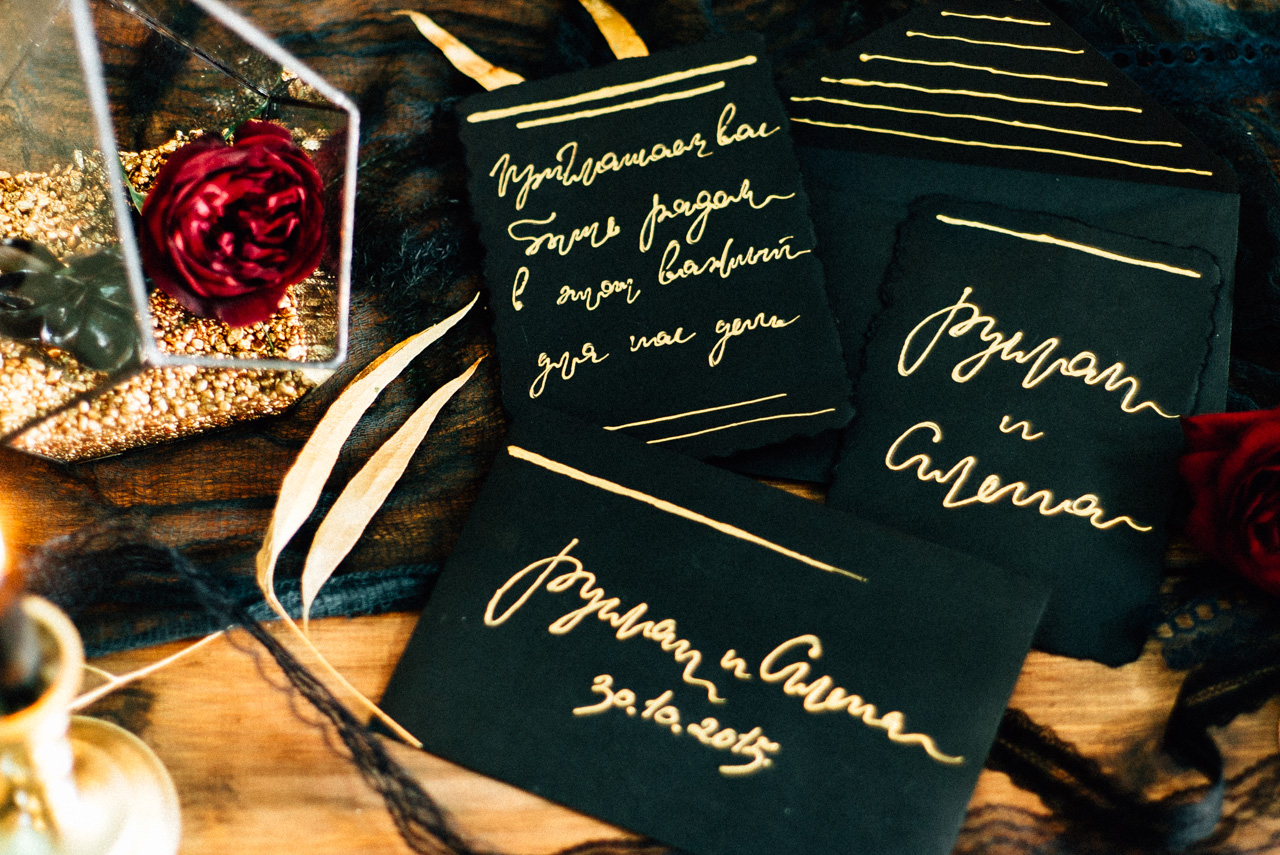 Приглашаем вас
быть рядом
в этот важный
для нас день
Руслан
и
Алена
Руслан и Алена
30.10.2015